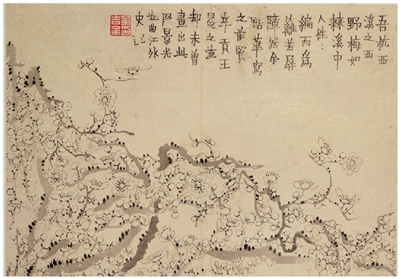 吾杭西
溪之西
野梅如
棘溪中
人往:
編而爲
籬若屏
障然余
點筆寫
之前賢
辛貢王
冕之流
却未曾
畫出此
段景光
也曲江外
史記